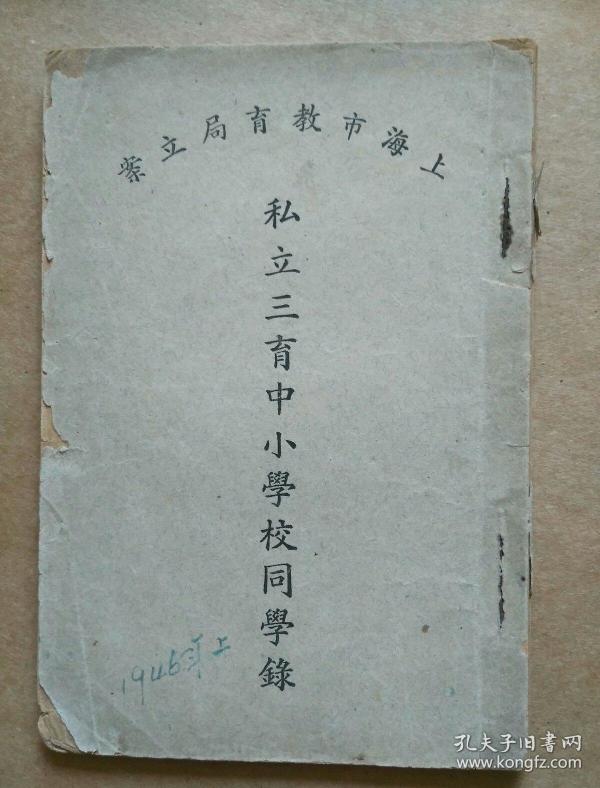 上海市教育局立案
私立三育中小學校同學錄
1946年上
孔夫子旧书网
www.kongfz.com